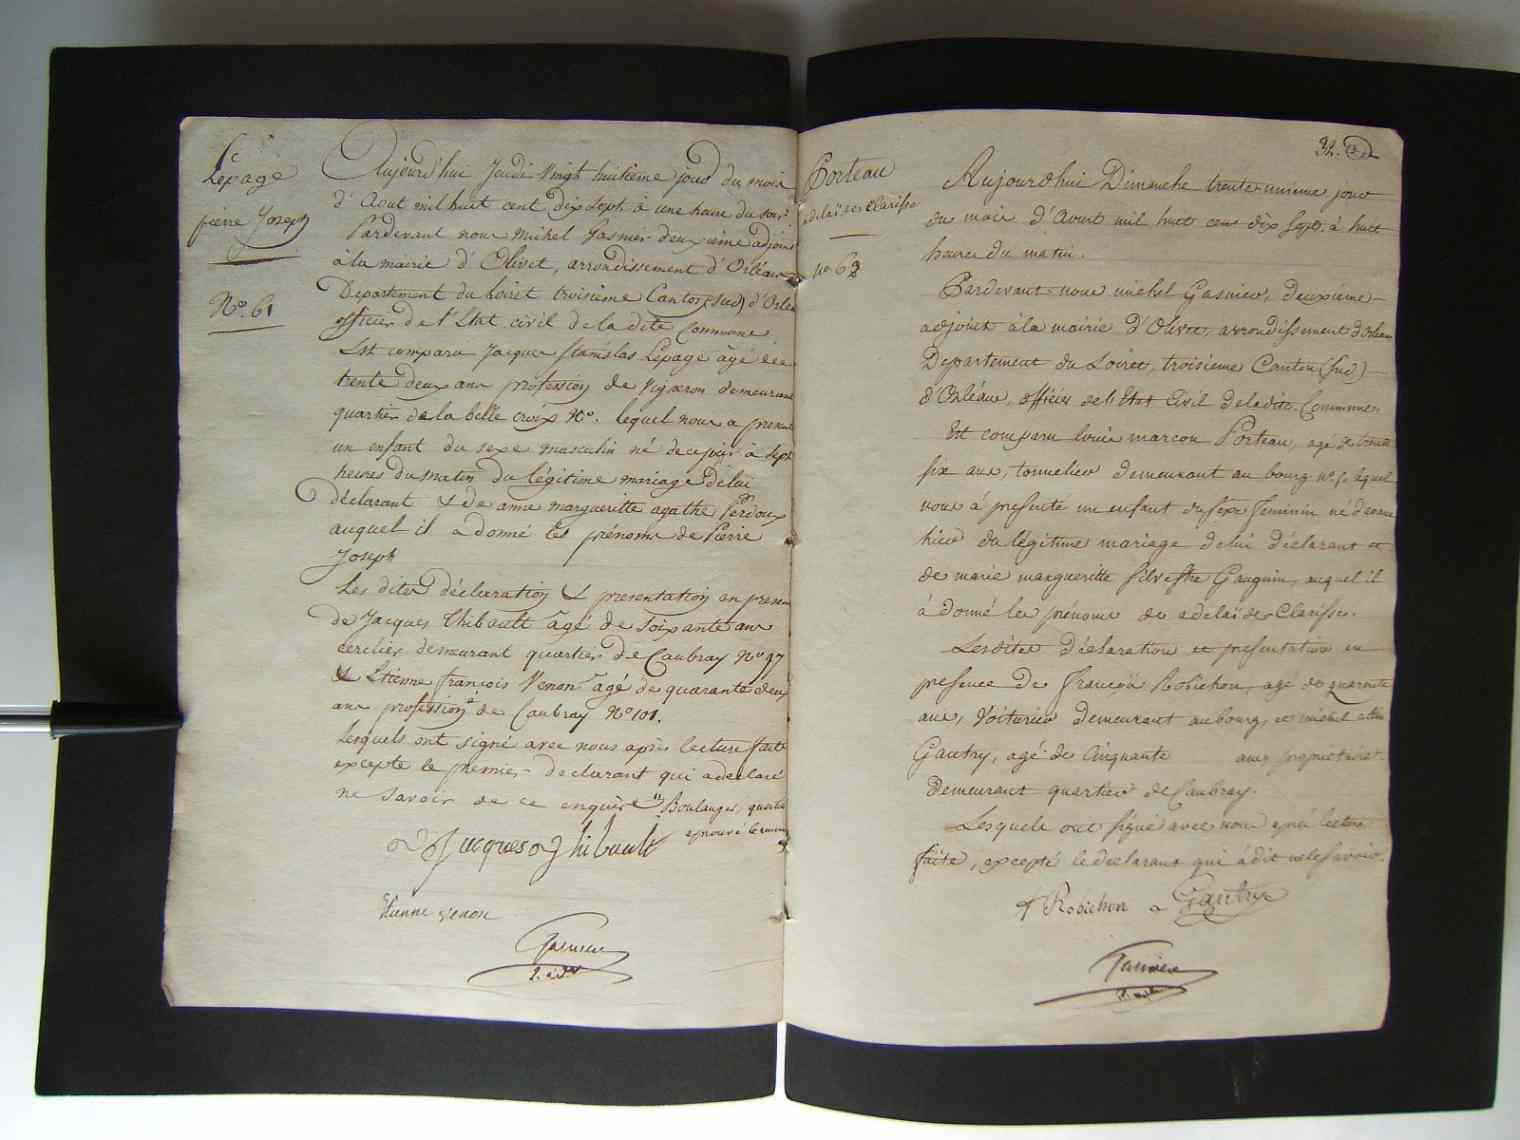 Lepage
pierre Joseph
N.o 61
Aujourd'hui Jeudi Vingt huitieme jour du mois
d'Aout mil huit cent dix Sept, à une heure du soir
Pardevant nous Michel Gasnier deuxieme adjoint
a la mairie d'Olivet, arrondissement d'Orléans
Departement du Loiret troisieme Canton (sud) d'Orlea
officier de l'Etat civil de la dite Commune
Est comparu Jacques Stanislas Lepage âgé de
trente deux ans profession de Vigneron demeurant
quartier de la belle croix N.o lequel nous a présen
un enfant du sexe masculin né de ce jour à Sept
heures du matin du légitime mariage de lui
déclarant & de anne margueritte agathe Perdoux
auquel il a donné les prénoms de Pierre
Joseph
Les dites déclaration & presentation en presen
de Jacques Thibault âgé de soixante ans
cerclier demeurant quartier de Caubray No 97
& Etienne françois Venon âgé de quarante deux
ans profession de Caubray No 101.
Lesquels ont signé avec nous après lecture faite
excepte le premier declarant qui a declaré
ne savoir de ce enquère Boulanger, quartier
approuvé
Jacques Thibault
Etienne Venon
Gasnier
2. adt
32.
Porteau
adelaïde Clarisse
no 62
Aujourdhui Dimanche trente unieme jour
du mois d'Aout mil huit cent dix Sept, à huit
heures du matin.
Pardevant nous michel Gasnier, deuxieme
adjoint à la mairie d'Olivet, arrondissement d'Orléans
Departement du Loiret, troisieme Canton (sud)
d'Orléans, officier de l'Etat Civil de ladite Commune.
Est comparu Louis marcou Porteau, agé de trente
six ans, tonnelier demeurant au bourg no 5, lequel
nous à presenté un enfant du sexe feminin né davant
hier du légitime mariage de lui déclarant et
de marie margueritte silvestre Gauguin, auquel il
à donné les prénoms de adelaïde Clarisse.
Lesdites déclaration et presentation en
presence de françois Robichon, agé de quarante
ans, Voiturier demeurant au bourg, et michel
Gautry, agé de Cinquante ans proprietaire
Demeurant quartier de Caubray.
Lesquels ont signé avec nous après lecture
faite, excepté le declarant qui à dit ne le savoir.
f Robichon Gautry
Gasnier